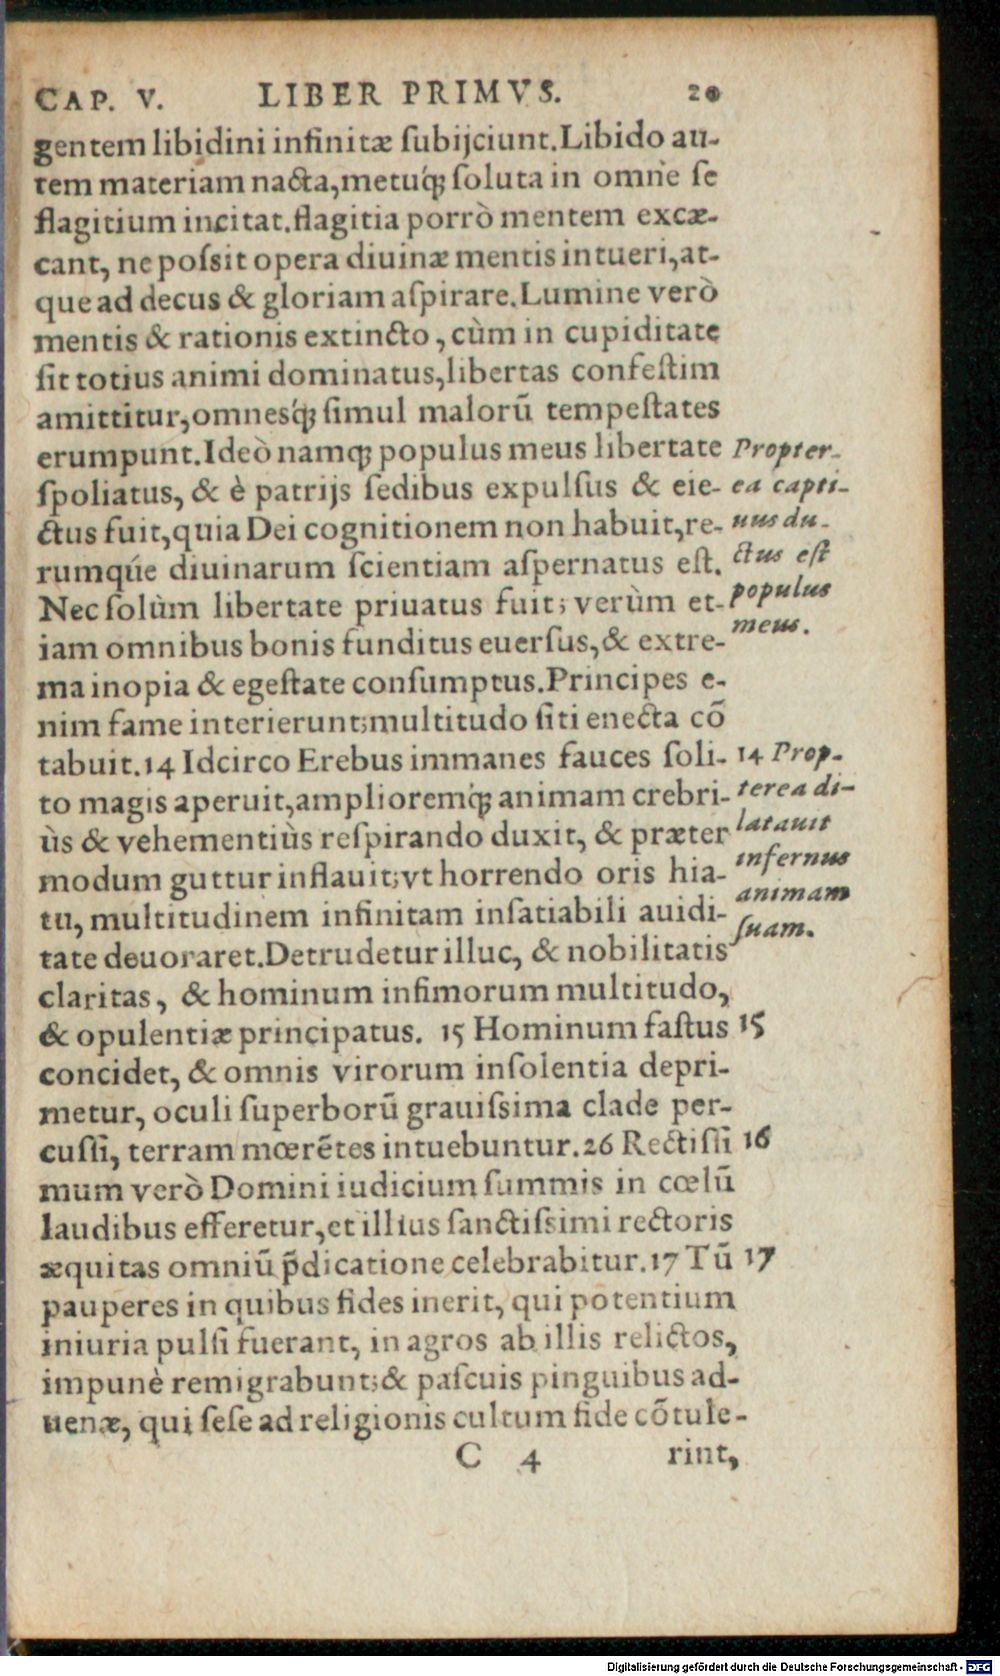 CAP. V. LIBER PRIMVS. 20
gentem libidini infinitæ ſubijciunt.Libido au-
tem materiam nacta,metuq́; ſoluta in omnè ſe
flagitium incitat.flagitia porrò mentem excæ-
cant, ne poſsit opera diuinæ mentis intueri,at-
que ad decus & gloriam aſpirare.Lumine verò
mentis & rationis extincto, cùm in cupiditate
ſit totius animi dominatus,libertas confeſtim
amittitur,omnesq́; ſimul malorũ tempeſtates
erumpunt.Ideò namq; populus meus libertate
ſpoliatus, & è patrijs ſedibus expulſus & eie-
ctus fuit,quia Dei cognitionem non habuit,re-
rumqúe diuinarum ſcientiam aſpernatus eſt.
Nec ſolùm libertate priuatus fuit; verùm et-
iam omnibus bonis funditus euerſus,& extre-
ma inopia & egeſtate conſumptus.Principes e-
nim fame interierunt;multitudo ſiti enecta cõ
tabuit.14 Idcirco Erebus immanes fauces ſoli-
to magis aperuit,ampliоremq́; animam crebri-
ùs & vehementiùs reſpirando duxit, & præter
modum guttur inflauit;vt horrendo oris hia-
tu, multitudinem infinitam inſatiabili auidi-
tate deuoraret.Detrudetur illuc, & nobilitatis
claritas, & hominum infimorum multitudo,
& opulentiæ principatus. 15 Hominum faſtus
concidet, & omnis virorum inſolentia depri-
metur, oculi ſuperborũ grauiſsima clade per-
cuſſi, terram mœrẽtes intuebuntur.26 Rectiſſi
mum verò Domini iudicium ſummis in cœlũ
laudibus efferetur,et illius ſanctiſsimi rectoris
æquitas omniũ p̃dicatione celebrabitur.17 Tũ
pauperes in quibus fides inerit, qui potentium
iniuria pulſi fuerant, in agros ab illis relictos,
impunè remigrabunt;& paſcuis pinguibus ad-
uenæ, qui ſeſe ad religionis cultum fide cõtule-
C 4 rint,
Propter-
ea capti-
uus du-
ctus eſt
populus
meus.
14 Prop-
terea di-
latauit
infernus
animam
ſuam.
15
16
17
Digitalisierung gefördert durch die Deutsche Forschungsgemeinschaft - DFG